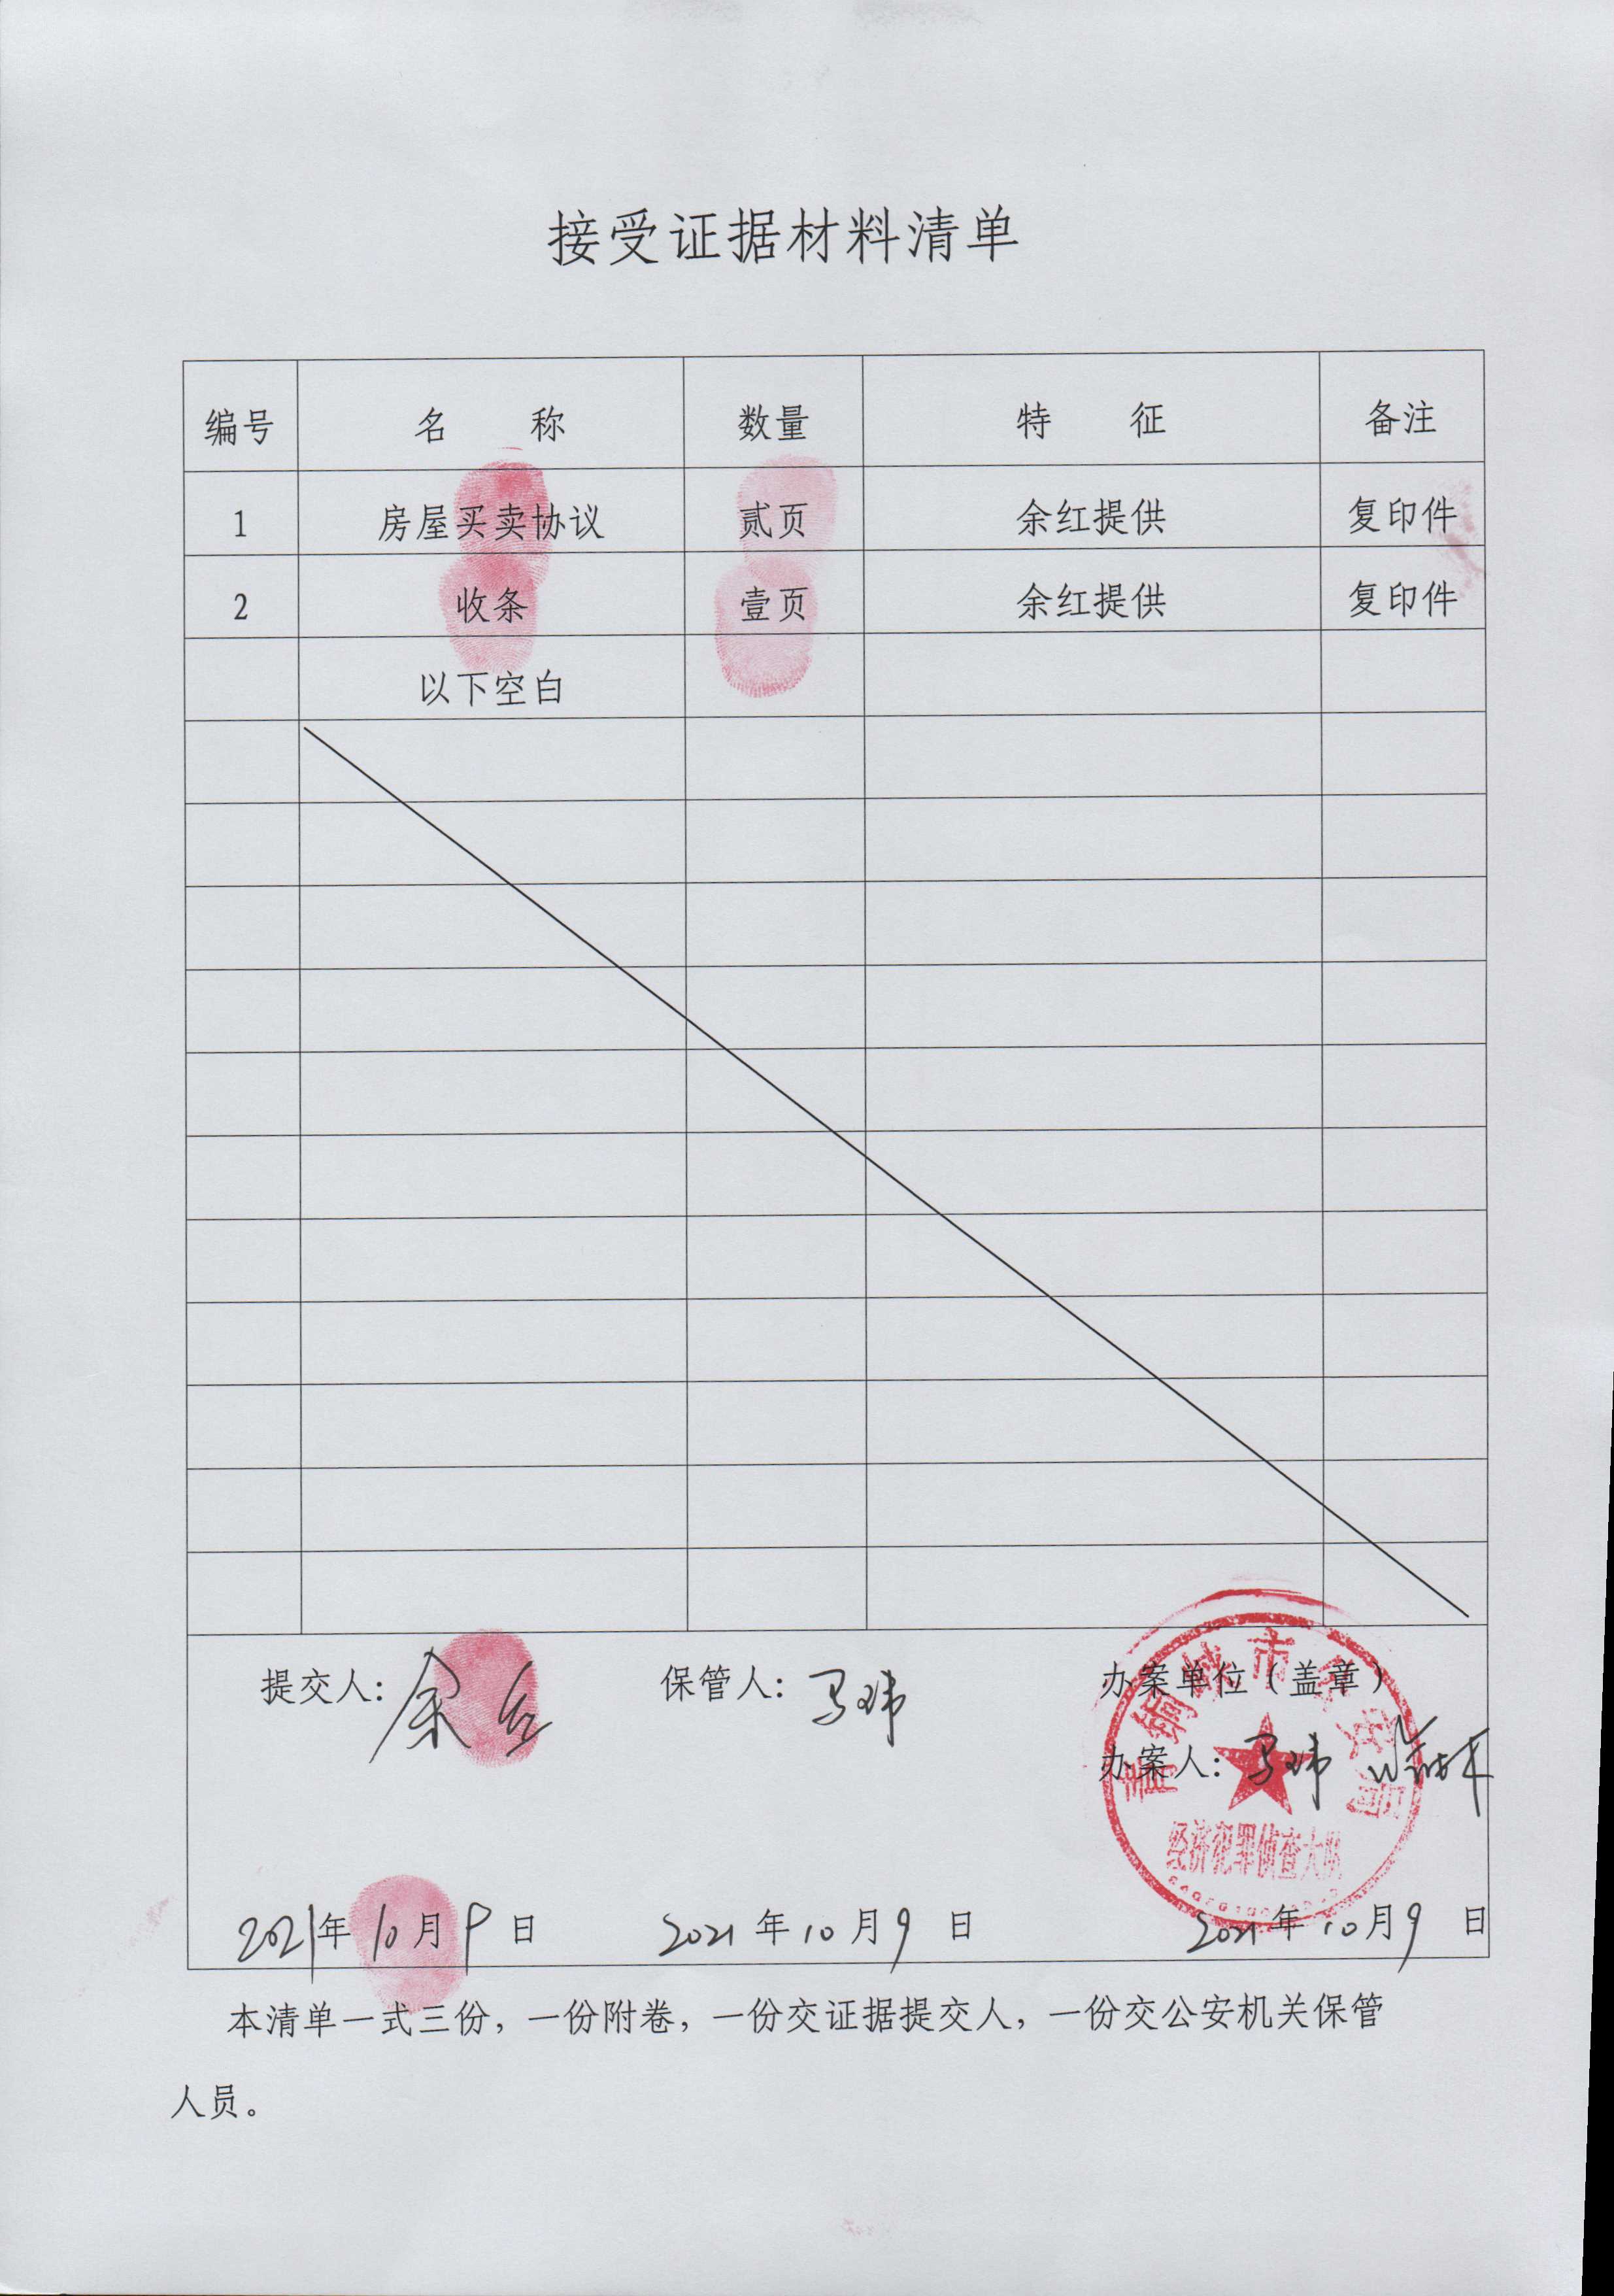 接受证据材料清单
编号 名 称 数量 特 征 备注
1 房屋买卖协议 贰页 余红提供 复印件
2 收条 壹页 余红提供 复印件
以下空白
提交人：余红 保管人：马玮 办案单位（盖章）
办案人：马玮
青铜峡市公安局
经济犯罪侦查大队
2021年10月9日 2021年10月9日 2021年10月9日
本清单一式三份，一份附卷，一份交证据提交人，一份交公安机关保管
人员。